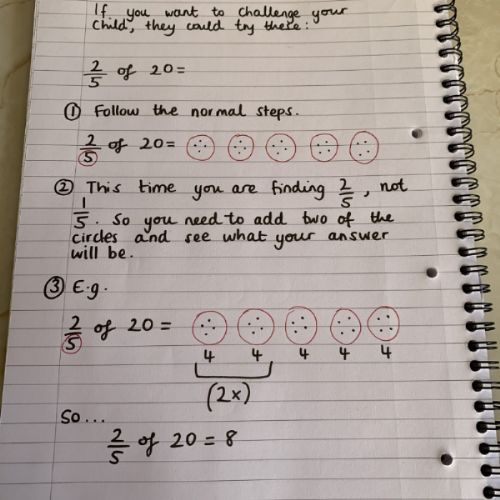 If you want to challenge your
child, they could try these:
2/5 of 20 =
① Follow the normal steps.
2/5 of 20 =
② This time you are finding 2/5, not
1/5. So you need to add two of the
circles and see what your answer
will be.
③ E.g.
2/5 of 20 =
4 4 4 4 4
(2x)
So...
2/5 of 20 = 8